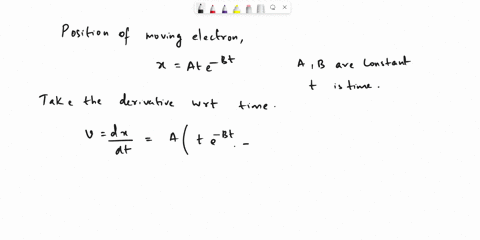 Position of moving electron,
x = At e^{-Bt}
A, B are constant
t is time.
Take the derivative wrt time.
V = dx/dt = A( t e^{-Bt} . –